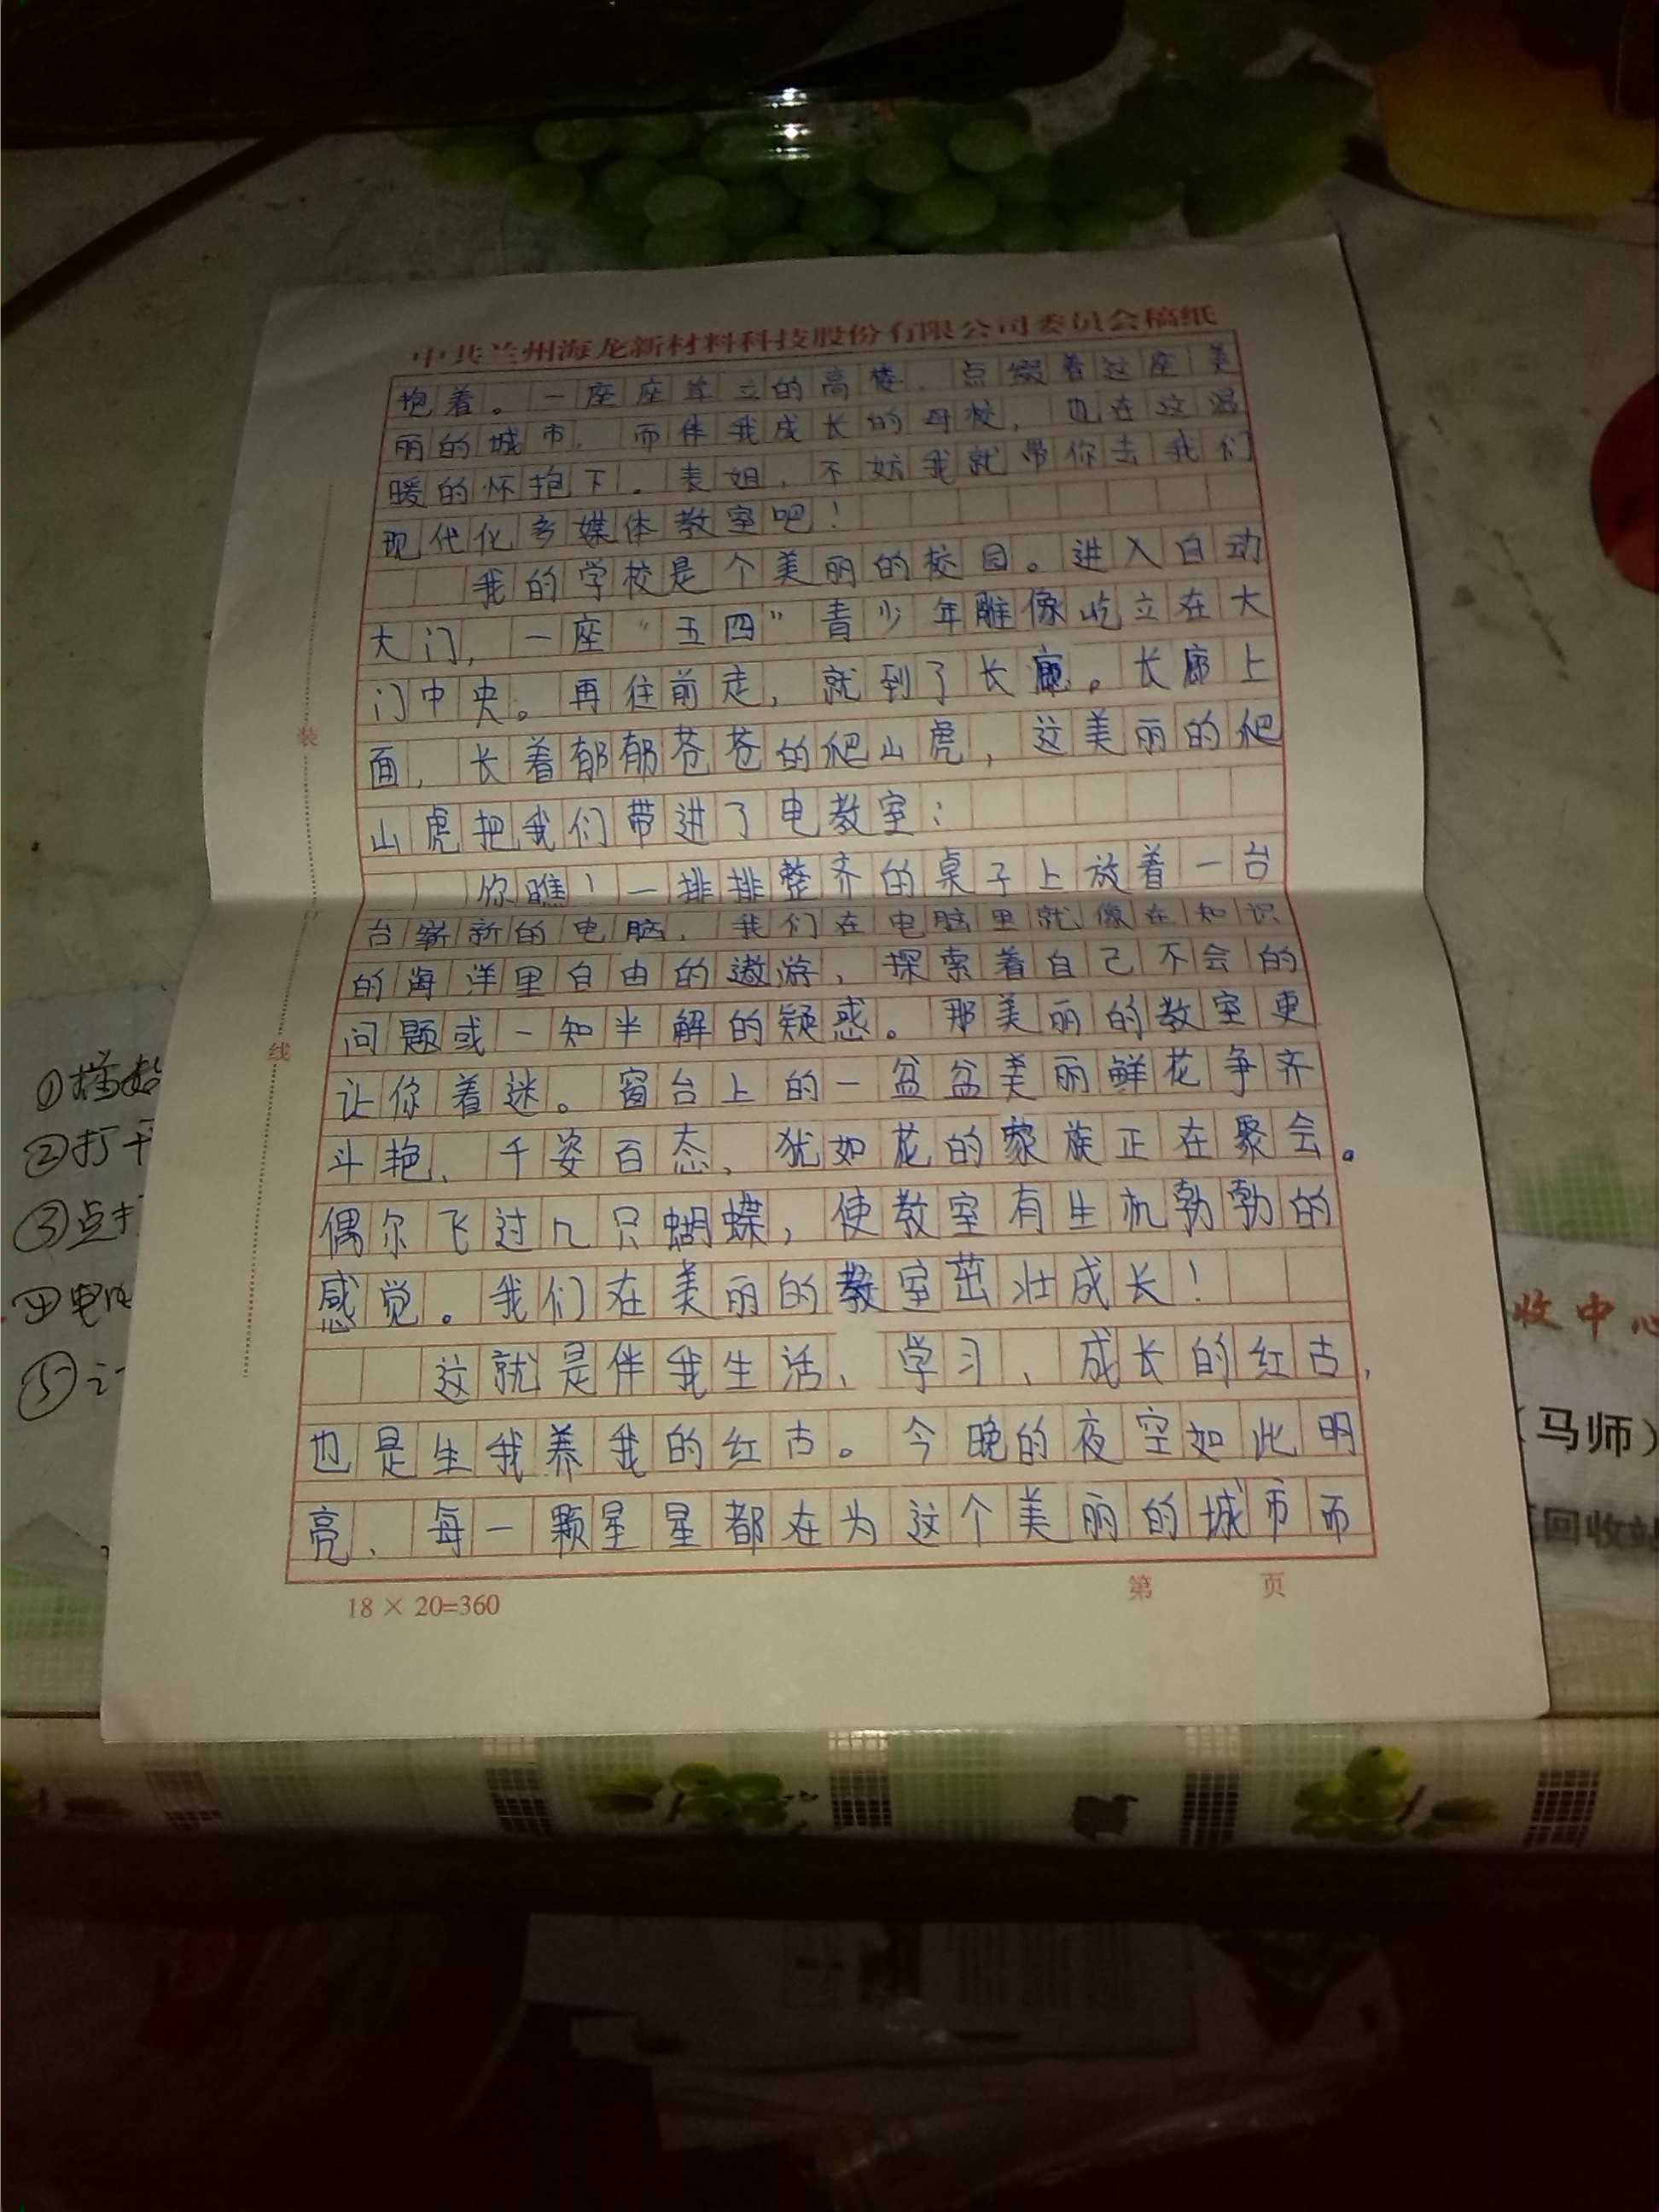 中共兰州海龙新材料科技股份有限公司委员会稿纸
抱着。一座座耸立的高楼、点缀着这座美
丽的城市，而伴我成长的母校，也在这温
暖的怀抱下。表姐，不妨我就带你去我们
现代化多媒体教室吧！
我的学校是个美丽的校园。进入自动
大门，一座“五四”青少年雕像屹立在大
门中央。再往前走，就到了长廊。长廊上
面，长着郁郁苍苍的爬山虎，这美丽的爬
山虎把我们带进了电教室：
你瞧！一排排整齐的桌子上放着一台
台崭新的电脑，我们在电脑里就像在知识
的海洋里自由的遨游，探索着自己不会的
问题或一知半解的疑惑。那美丽的教室更
让你着迷。窗台上的一盆盆美丽鲜花争齐
斗艳、千姿百态、犹如花的家族正在聚会。
偶尔飞过几只蝴蝶，使教室有生机勃勃的
感觉。我们在美丽的教室茁壮成长！
这就是伴我生活、学习、成长的红古，
也是生我养我的红古。今晚的夜空如此明
亮、每一颗星星都在为这个美丽的城市而
18 × 20=360
第 页
装
订
线
①
②打
③点
④电
⑤
收中心
（马师）
回收站